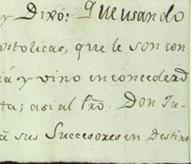 y Dixo: Que usando
ostolicas, que le son con
ná y vino en conceder
ta; asi al Pro. Don Ju
sus Succesores en Destino